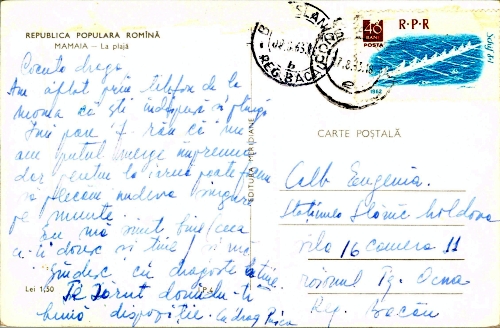 REPUBLICA POPULARA ROMÎNĂ
MAMAIA – La plajă
Cocuța dragă
Am aflat prin telefon de la
moma că ești indispusă și plîngi
Îmi pare f. rău că nu
am putut merge împreună
dar pentru la iarnă poate facem
să plecăm undeva singuri
pe munte.
Eu mă simt bine, ceea
ce-ți doresc și ție și mă
gîndesc cu dragoste la tine.
Te sărut dorindu-ți
bună dispoziție. Cu drag
Lei 1,50
EDITURA MERIDIANE
SLĂNIC
REG. BACĂU
40
BANI
POSTA
R·P·R
1962
CARTE POȘTALĂ
Calb Eugenia
Stațiunea Slănic Moldova
Vila 16 camera 11
raionul Tg. Ocna
Reg. Bacău